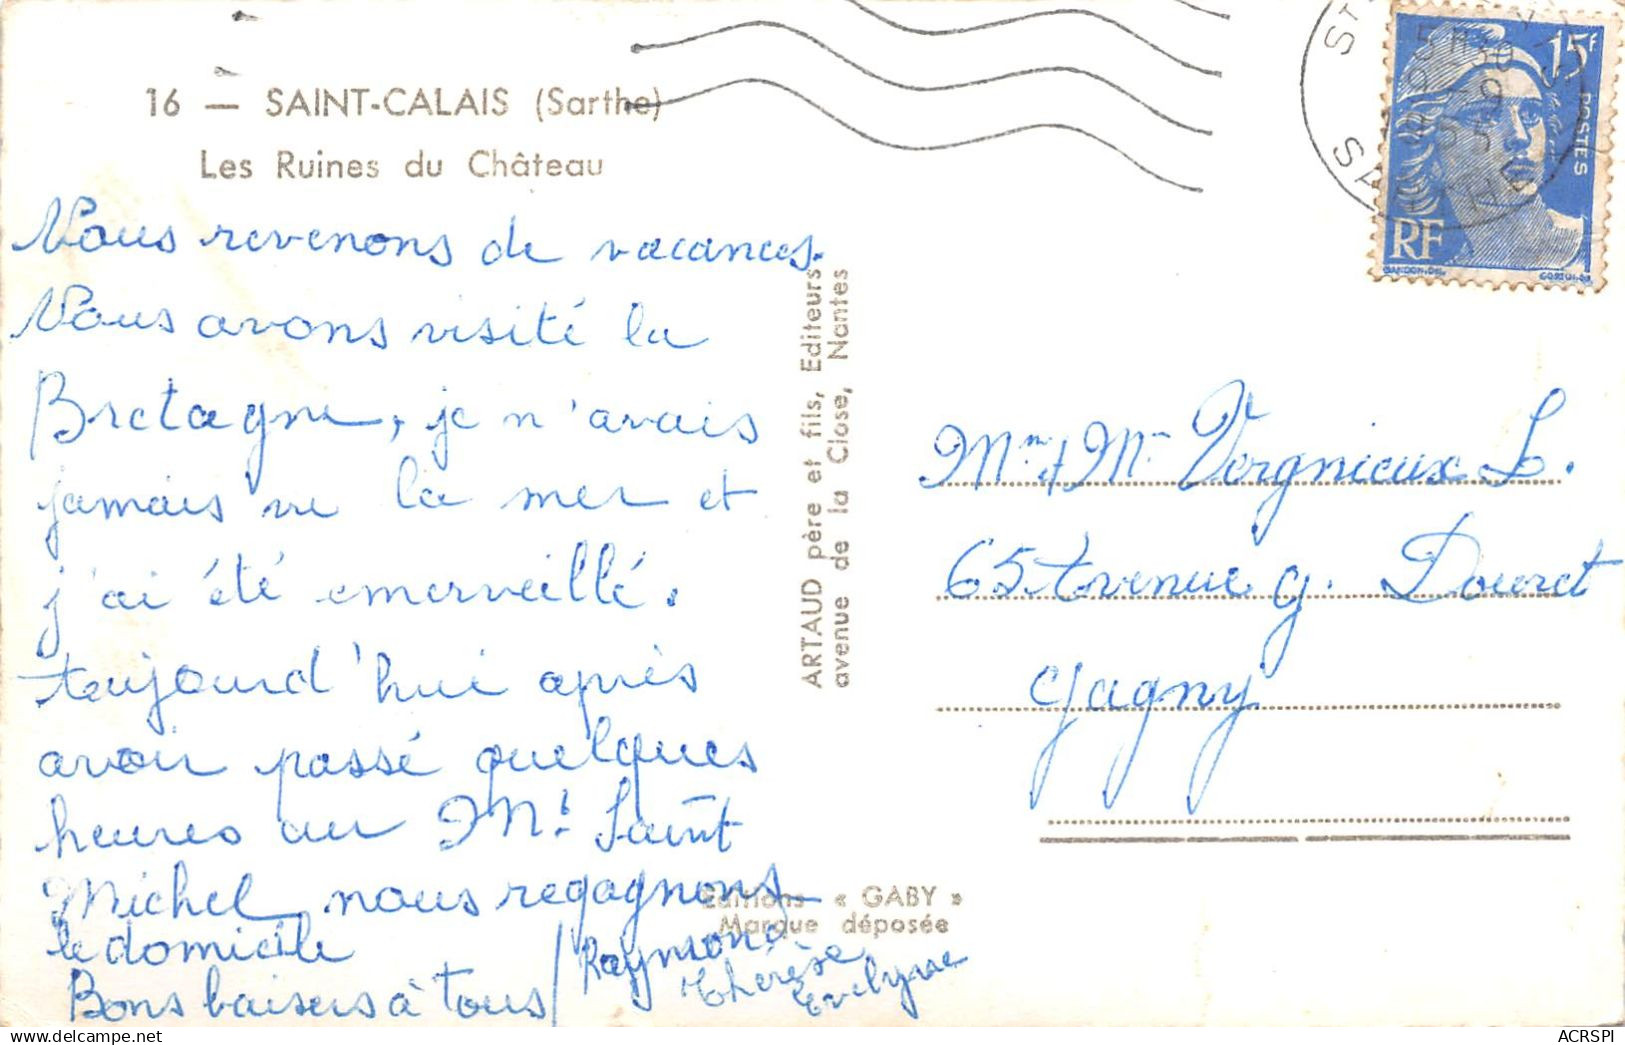 16 — SAINT-CALAIS (Sarthe)
Les Ruines du Château
Nous revenons de vacances.
Nous avons visité la
Bretagne, je n'avais
jamais vu la mer et
j'ai été émerveillé.
aujourd'hui après
avoir passé quelques
heures au Mt Saint
Michel nous regagnons
le domicile
Bons baisers à tous
Raymond
Thérèse
Evelyne
ARTAUD père et fils, Editeurs
avenue de la Close, Nantes
Editions « GABY »
Marque déposée
15f
POSTES
RF
GANDON-DEL.
SARTHE
Mme & Mr Vergnieux L.
65 Avenue G. Douret
Gagny
ACRSPI